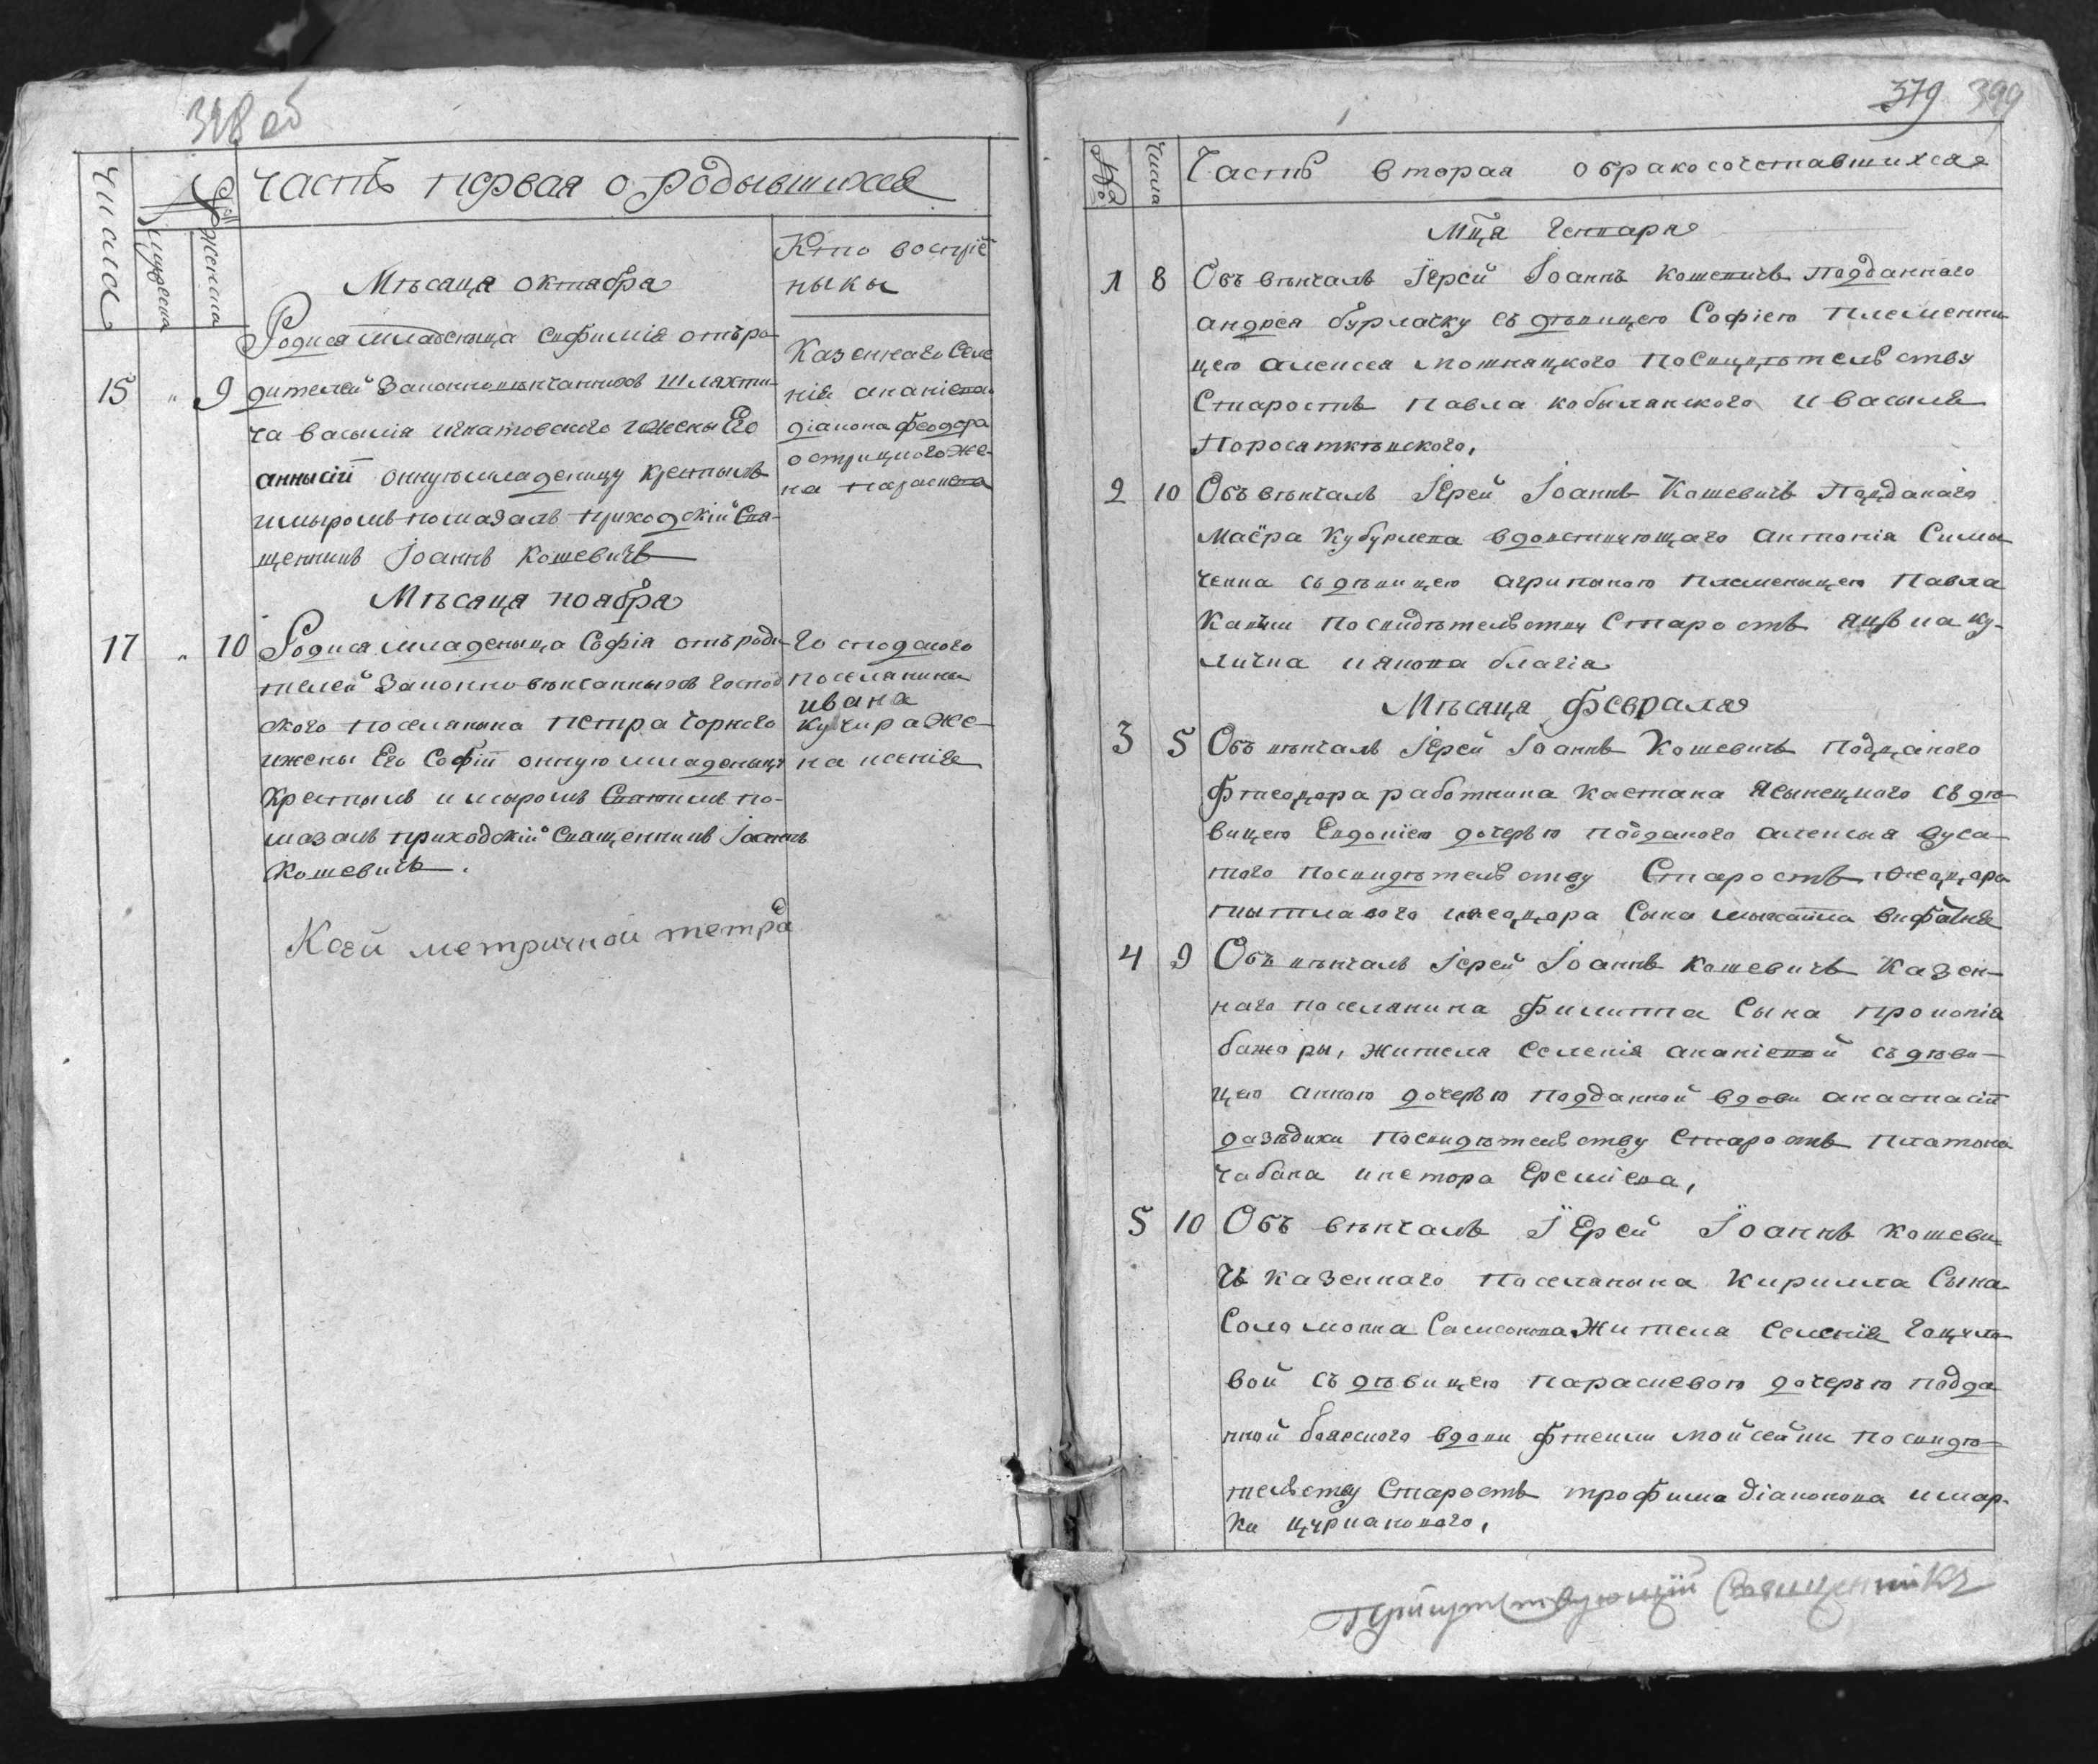 Числа
№
мужеска
женска
Часть первая о родывшихся
Кто воспріе
ныкы
Мѣсаца октабра
15 " 9
Родися младеныца Евфимія отъ ро-
дителей законновѣнчанныхъ шляхти-
ча василія игнатовского и жены Его
анны сій онную младеницу крестылъ
и мыромъ помазалъ приходскій Свя-
щенникъ Іоаннъ Кошевичъ
Казеннаго Селе
нія ананіева
діакона феодора
острицкого же-
на параскева
Мѣсаца ноабра
17 " 10
Родися младеныца Софія отъ роди-
телей законновѣнчанныхъ господ
ского поселянына Петра Чорного
и жены Его Софіи онную младеныцу
крестылъ и мыромъ Святымъ по-
мазалъ приходскій Священникъ Іоаннъ
Кошевичъ.
Господского
поселянина
ивана
кучира же-
на ксенія
Коей метричной тетрад
379 399
№
Числа
Часть вторая о бракосочетавшихся
Мца Генваря
1 8 Объвѣнчалъ Іерей Іоаннъ Кошевичъ Подданного
андрея бурлачку съ дѣвицею Софіею племенни-
цею алексея мошняцкого Посвидѣтельству
Старостъ Павла кобыланского и васыля
Поросатквского,
2 10 Объвѣнчалъ Іерей Іоаннъ Кошевичъ Подданаго
маёра Кубурлева вдовствующаго антонія Симы-
ченка съ дѣвицею агрипиною племеныцею Павла
Посвидѣтельству Старостъ яцька ку-
лычка и якова благія
Мѣсаца февраля
3 5 Объвѣнчалъ Іерей Іоаннъ Кошевичъ Подданого
Фтеодора работника кастана Ясынецкого съ дѣ-
вицею Евдокіею дочерью подданого алексыя дуса-
того посвидѣтельству Старостъ Феодора
Сына
4 9 Объвѣнчалъ Іерей Іоаннъ Кошевичъ Казен-
наго поселянина Филиппа Сына Прокопія
бажоры, жителя Селенія ананіевой съ дѣви-
цею анною дочерью подданной вдовы анастасіи
посвидѣтельству Старостъ Платона
чабана и нетора Еремієва,
5 10 Объвѣнчалъ Іерей Іоаннъ Кошеви-
чъ казеннаго Поселянына Кирилла Сына
Соломона Самсонова жителя Селенія Гоцуло-
вой съ дѣвицею параскевою дочерью подда-
нной боярского вдовы Фтеклы мойсейки посвидѣ-
тельству Старостъ трофима діаконова и мар-
ка цуркановаго,
Присутствующій Священникъ